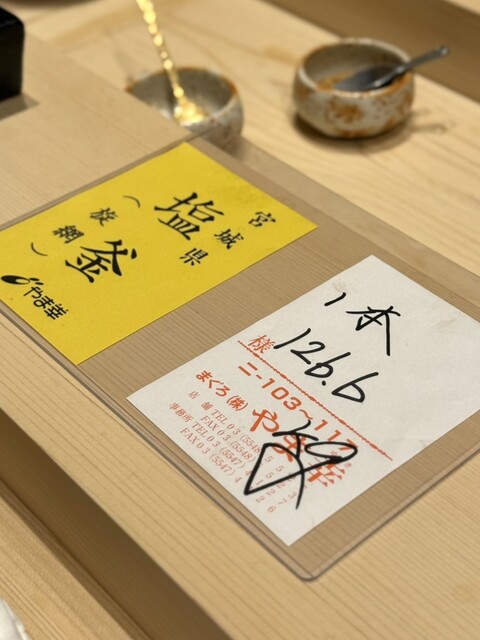 宮城県
塩釜
（旋網）
やま幸
1本
126.6
様
ニ-103〜11
まぐろ(株)やま幸
店舗 TEL 03 (5548)
FAX 03 (5548)
事務所 TEL 03 (5547) 4
FAX 03 (5547) 4